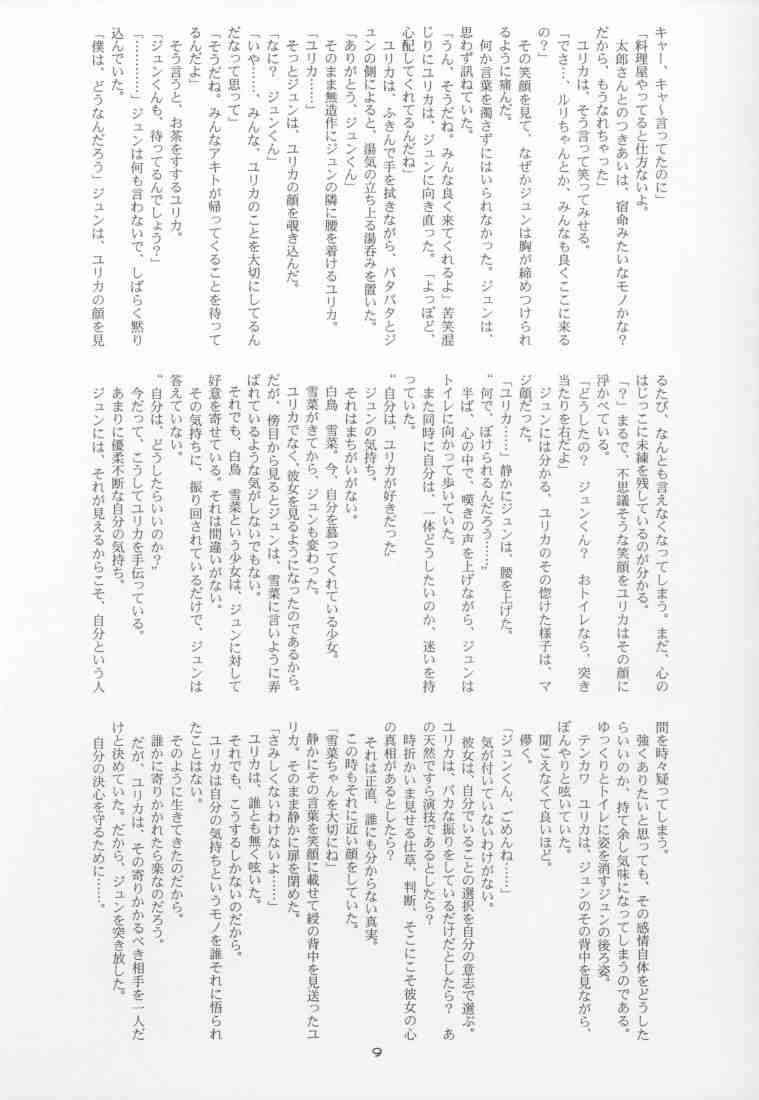 キャー、キャー言ってたのに」
「料理屋やってると仕方ないよ。
太郎さんとのつきあいは、宿命みたいなモノかな？
だから、もうなれちゃった」
ユリカは、そう言って笑ってみせる。
「でさ…、ルリちゃんとか、みんなも良くここに来る
の？」
その笑顔を見て、なぜかジュンは胸が締めつけられ
るように痛んだ。
何か言葉を濁さずにはいられなかった。ジュンは、
思わず訊ねていた。
「うん、そうだね。みんな良く来てくれるよ」苦笑混
じりにユリカは、ジュンに向き直った。「よっぽど、
心配してくれてるんだね」
ユリカは、ふきんで手を拭きながら、パタパタとジ
ュンの側によると、湯気の立ち上る湯呑みを置いた。
「ありがとう、ジュンくん」
そのまま無造作にジュンの隣に腰を着けるユリカ。
「ユリカ……」
そっとジュンは、ユリカの顔を覗き込んだ。
「なに？　ジュンくん」
「いや……、みんな、ユリカのことを大切にしてるん
だなって思って」
「そうだね。みんなアキトが帰ってくることを待って
るんだよ」
そう言うと、お茶をすするユリカ。
「ジュンくんも、待ってるんでしょう？」
「…………」ジュンは何も言わないで、しばらく黙り
込んでいた。
「僕は、どうなんだろう」ジュンは、ユリカの顔を見
るたび、なんとも言えなくなってしまう。まだ、心の
はじっこに未練を残しているのが分かる。
「？」まるで、不思議そうな笑顔をユリカはその顔に
浮かべている。
「どうしたの？　ジュンくん？　おトイレなら、突き
当たりを右だよ」
ジュンには分かる、ユリカのその惚けた様子は、マ
ジ顔だった。
「ユリカ……」静かにジュンは、腰を上げた。
“何で、ぼけられるんだろう……”
半ば、心の中で、嘆きの声を上げながら、ジュンは
トイレに向かって歩いていた。
また同時に自分は、一体どうしたいのか、迷いを持
っていた。
“自分は、ユリカが好きだった”
ジュンの気持ち。
それはまちがいがない。
白鳥　雪菜。今、自分を慕ってくれている少女。
雪菜がきてから、ジュンも変わった。
ユリカでなく、彼女を見るようになったのであるから。
だが、傍目から見るとジュンは、雪菜に言いように弄
ばれているような気がしないでもない。
それでも、白鳥　雪菜という少女は、ジュンに対して
好意を寄せている。それは間違いがない。
その気持ちに、振り回されているだけで、ジュンは
答えていない。
“自分は、どうしたらいいのか？”
今だって、こうしてユリカを手伝っている。
あまりに優柔不断な自分の気持ち。
ジュンには、それが見えるからこそ、自分という人
間を時々疑ってしまう。
強くありたいと思っても、その感情自体をどうした
らいいのか、持て余し気味になってしまうのである。
ゆっくりとトイレに姿を消すジュンの後ろ姿。
テンカワ　ユリカは、ジュンのその背中を見ながら、
ぼんやりと呟いていた。
聞こえなくて良いほど。
儚く。
「ジュンくん、ごめんね……」
気が付いていないわけがない。
彼女は、自分でいることの選択を自分の意志で選ぶ。
ユリカは、バカな振りをしているだけだとしたら？　あ
の天然ですら演技であるとしたら？
時折かいま見せる仕草、判断、そこにこそ彼女の心
の真相があるとしたら？
それは正直、誰にも分からない真実。
この時もそれに近い顔をしていた。
「雪菜ちゃんを大切にね」
静かにその言葉を笑顔に載せて綬の背中を見送ったユ
リカ。そのまま静かに扉を閉めた。
「さみしくないわけないよ……」
ユリカは、誰とも無く呟いた。
それでも、こうするしかないのだから。
ユリカは自分の気持ちというモノを誰それに悟られ
たことはない。
そのように生きてきたのだから。
誰かに寄りかかれたら楽なのだろう。
だが、ユリカは、その寄りかかるべき相手を一人だ
けと決めていた。だから、ジュンを突き放した。
自分の決心を守るために……。
9